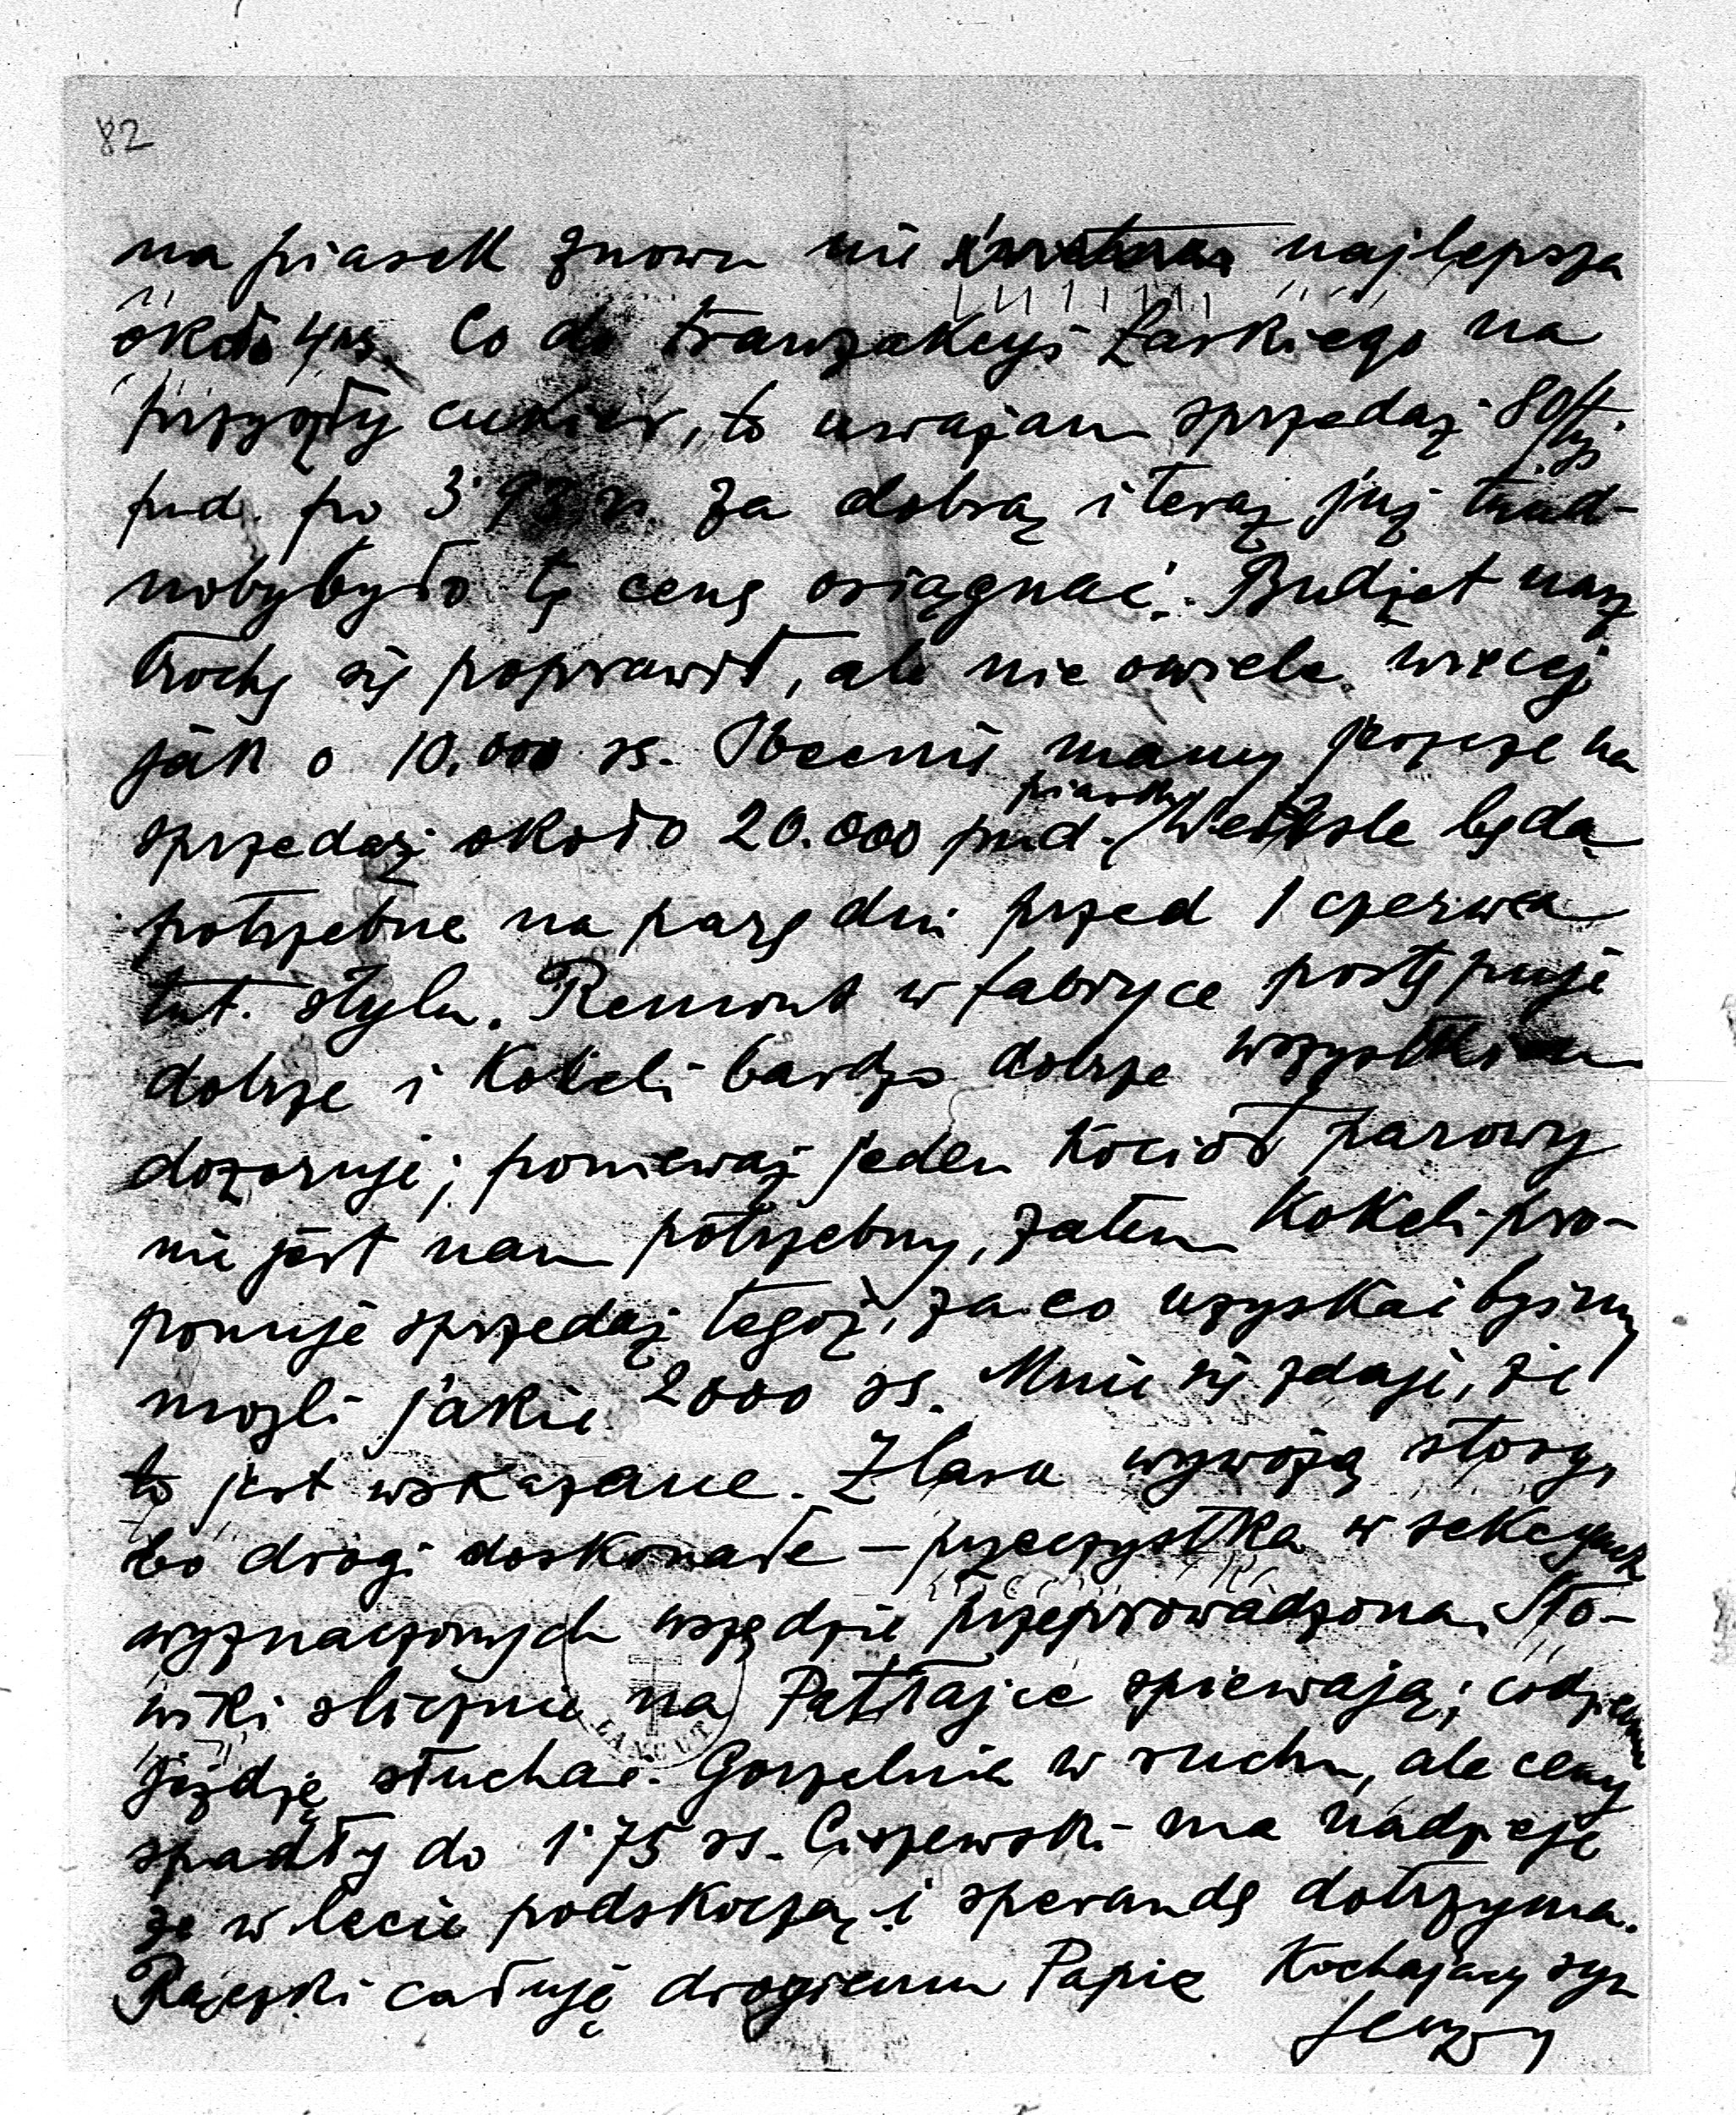 82
na piasek znowu nie najlepsza
około 4 rs. Co do tranzakcyi Łaskiego na
przyszły cukier, to uważam sprzedaż 80/tys
pud. po 3.93 rs za dobrą i teraz już trud-
nobybyło tę cenę osiągnać. Budżet nasz
trochę się poprawił, ale nie owiele więcej
jak o 10.000 rs. Obecnie mamy jeszcze na
sprzedaż około 20.000 pud. piasku. Weksle będą
potrzebne na parę dni przed 1 czerwca
tut. stylu. Remont w fabryce postępuje
dobrze i Kokeli bardzo dobrze wszystkiem
dozoruje; ponieważ jeden kocioł parowy
nie jest nam potrzebny, zatem Kokeli pro-
ponuje sprzedaż tegoż, za co uzyskać byśmy
mogli jakie 2000 rs. Mnie się zdaje, że
to jest wskazane. Z lasu wywożą stosy,
bo drogi doskonałe – przeczystka w sekcyach
wyznaczonych wszędzie przeprowadzona. Sło-
wiki ślicznie na Pettajce śpiewają; codziennie
jeżdżę słuchać. Gorzelnia w ruchu, ale ceny
spadły do 1.75 rs. Ciszewski ma nadzieję
że w lecie podskoczą i sperandę dotrzyma.
Rączki całuję drogiemu Papie Kochający syn
Jerzy
ŁAŃCUT